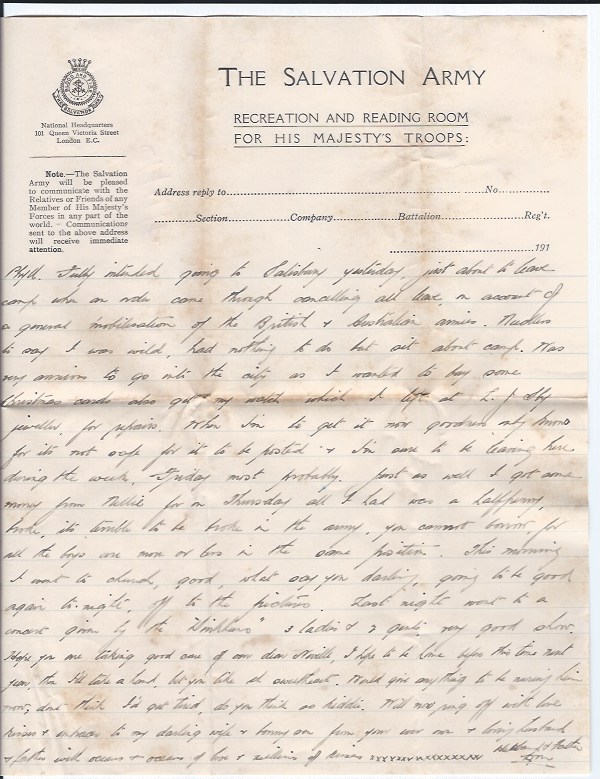 BLOOD AND FIRE
THE SALVATION ARMY
National Headquarters
101 Queen Victoria Street
London E.C.
THE SALVATION ARMY
RECREATION AND READING ROOM
FOR HIS MAJESTY'S TROOPS:
Note.—The Salvation
Army will be pleased
to communicate with the
Relatives or Friends of any
Member of His Majesty's
Forces in any part of the
world. – Communications
sent to the above address
will receive immediate
attention.
Address reply to No
Section Company Battalion Reg't.
191
Fully intended going to Salisbury yesterday, just about to leave
camp when an order came through cancelling all leave on account of
a general mobilisation of the British & Australian armies. Needless
to say I was wild, had nothing to do but sit about camp. Was
very anxious to go into the city as I wanted to buy some
Christmas cards also get my watch which I left at
jeweller, for repairs. When I'm to get it now goodness only knows
for its not safe for it to be posted & I'm sure to be leaving here
during the week, Friday most probably. Just as well I got some
money from Nellie for on Thursday all I had was a halfpenny,
broke, its terrible to be broke in the army, you cannot borrow, for
all the boys are more or less in the same position. This morning
I went to church, good, what say you darling, going to be good
again to-night, off to the pictures. Last night went to a
concert given by the 3 ladies & 2 gents, very good show.
Hope you are taking good care of our dear Neville, I hope to be home before this time next
year, then I'll take a hand, bet you like it sweetheart. Would give anything to be nursing him
now, don't think I'd get tired, do you think so kiddie. Will now ring off with love
kisses & to my darling wife & bonny son from your ever own & loving husband
& father with oceans & oceans of love & millions of kisses xxxxxxxxxxxxxxx